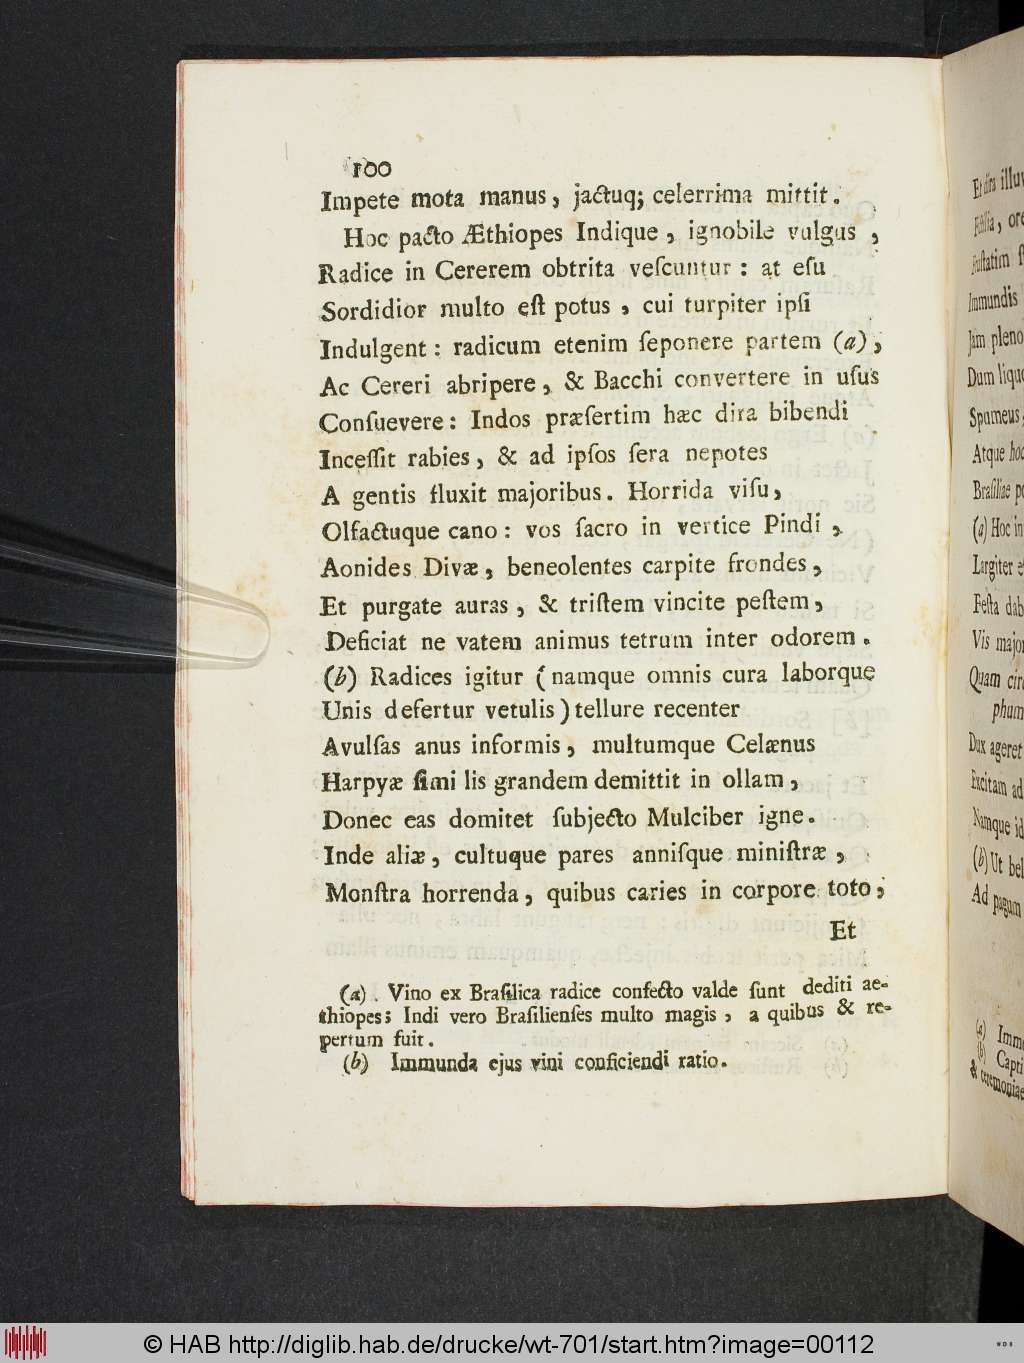 100
Impete mota manus, jactuq; celerrima mittit.
Hoc pacto Æthiopes Indique, ignobile vulgus,
Radice in Cererem obtrita veſcuntur: at eſu
Sordidior multo eſt potus, cui turpiter ipſi
Indulgent: radicum etenim ſeponere partem (a),
Ac Cereri abripere, & Bacchi convertere in uſus
Conſuevere: Indos præſertim hæc dira bibendi
Inceſſit rabies, & ad ipſos ſera nepotes
A gentis fluxit majoribus. Horrida viſu,
Olfactuque cano: vos ſacro in vertice Pindi,
Aonides Divæ, beneolentes carpite frondes,
Et purgate auras, & triſtem vincite peſtem,
Deficiat ne vatem animus tetrum inter odorem.
(b) Radices igitur (namque omnis cura laborque
Unis defertur vetulis) tellure recenter
Avulſas anus informis, multumque Celænus
Harpyæ ſimi lis grandem demittit in ollam,
Donec eas domitet ſubjecto Mulciber igne.
Inde aliæ, cultuque pares anniſque miniſtræ,
Monſtra horrenda, quibus caries in corpore toto;
Et
(a). Vino ex Braſilica radice confecto valde ſunt dediti ae-
thiopes; Indi vero Braſilienſes multo magis, a quibus & re-
pertum fuit.
(b) Immunda ejus vini conficiendi ratio.
Fruſtatim
Immundis
Jam pleno
Spumeus,
Atque hoc
Braſiliae
(a) Hoc in
Largiter
Feſta
Vis
Quam
phum
Dux ageret
Excitam ad
Namque id
(b) Ut
Ad pagum
(a)
(b) Capti
& ceremoniae
© HAB http://diglib.hab.de/drucke/wt-701/start.htm?image=00112